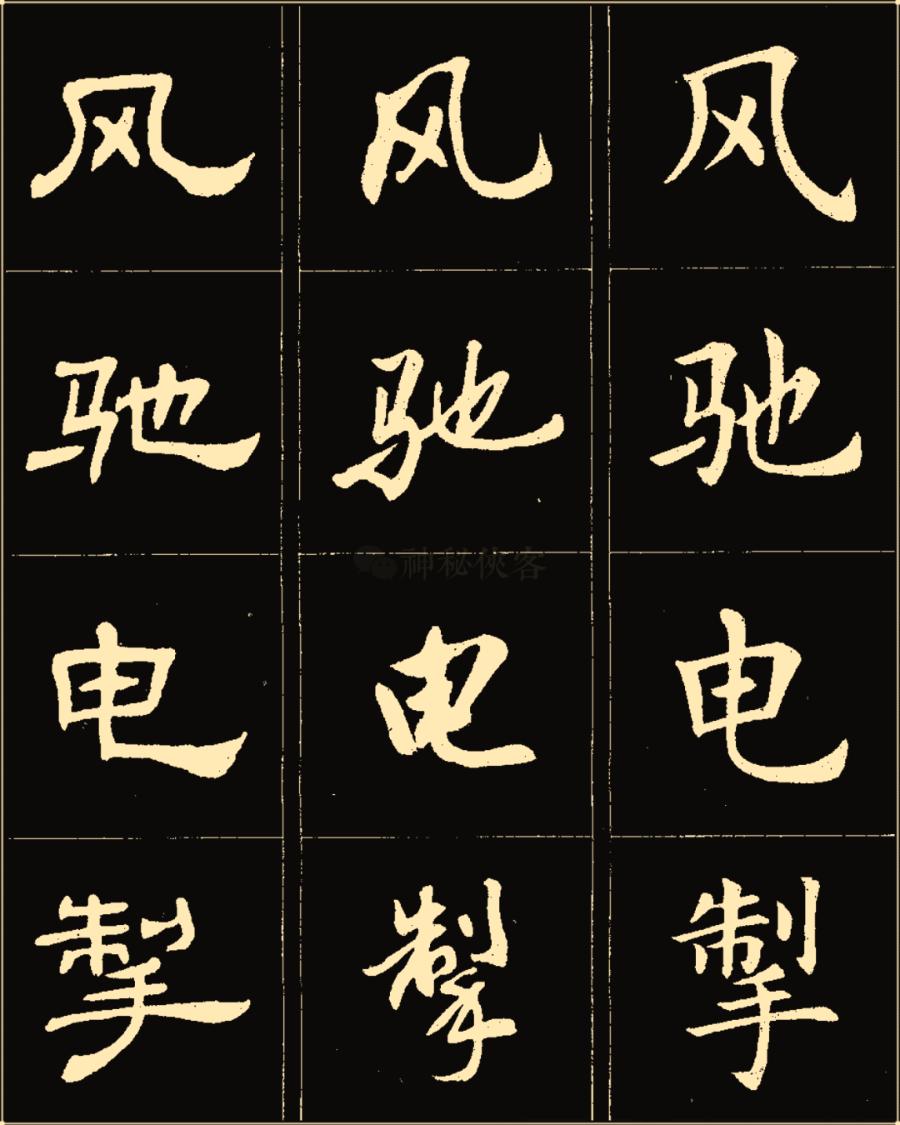 风 风 风
驰 驰 驰
电 电 电
掣 掣 掣
神秘侠客